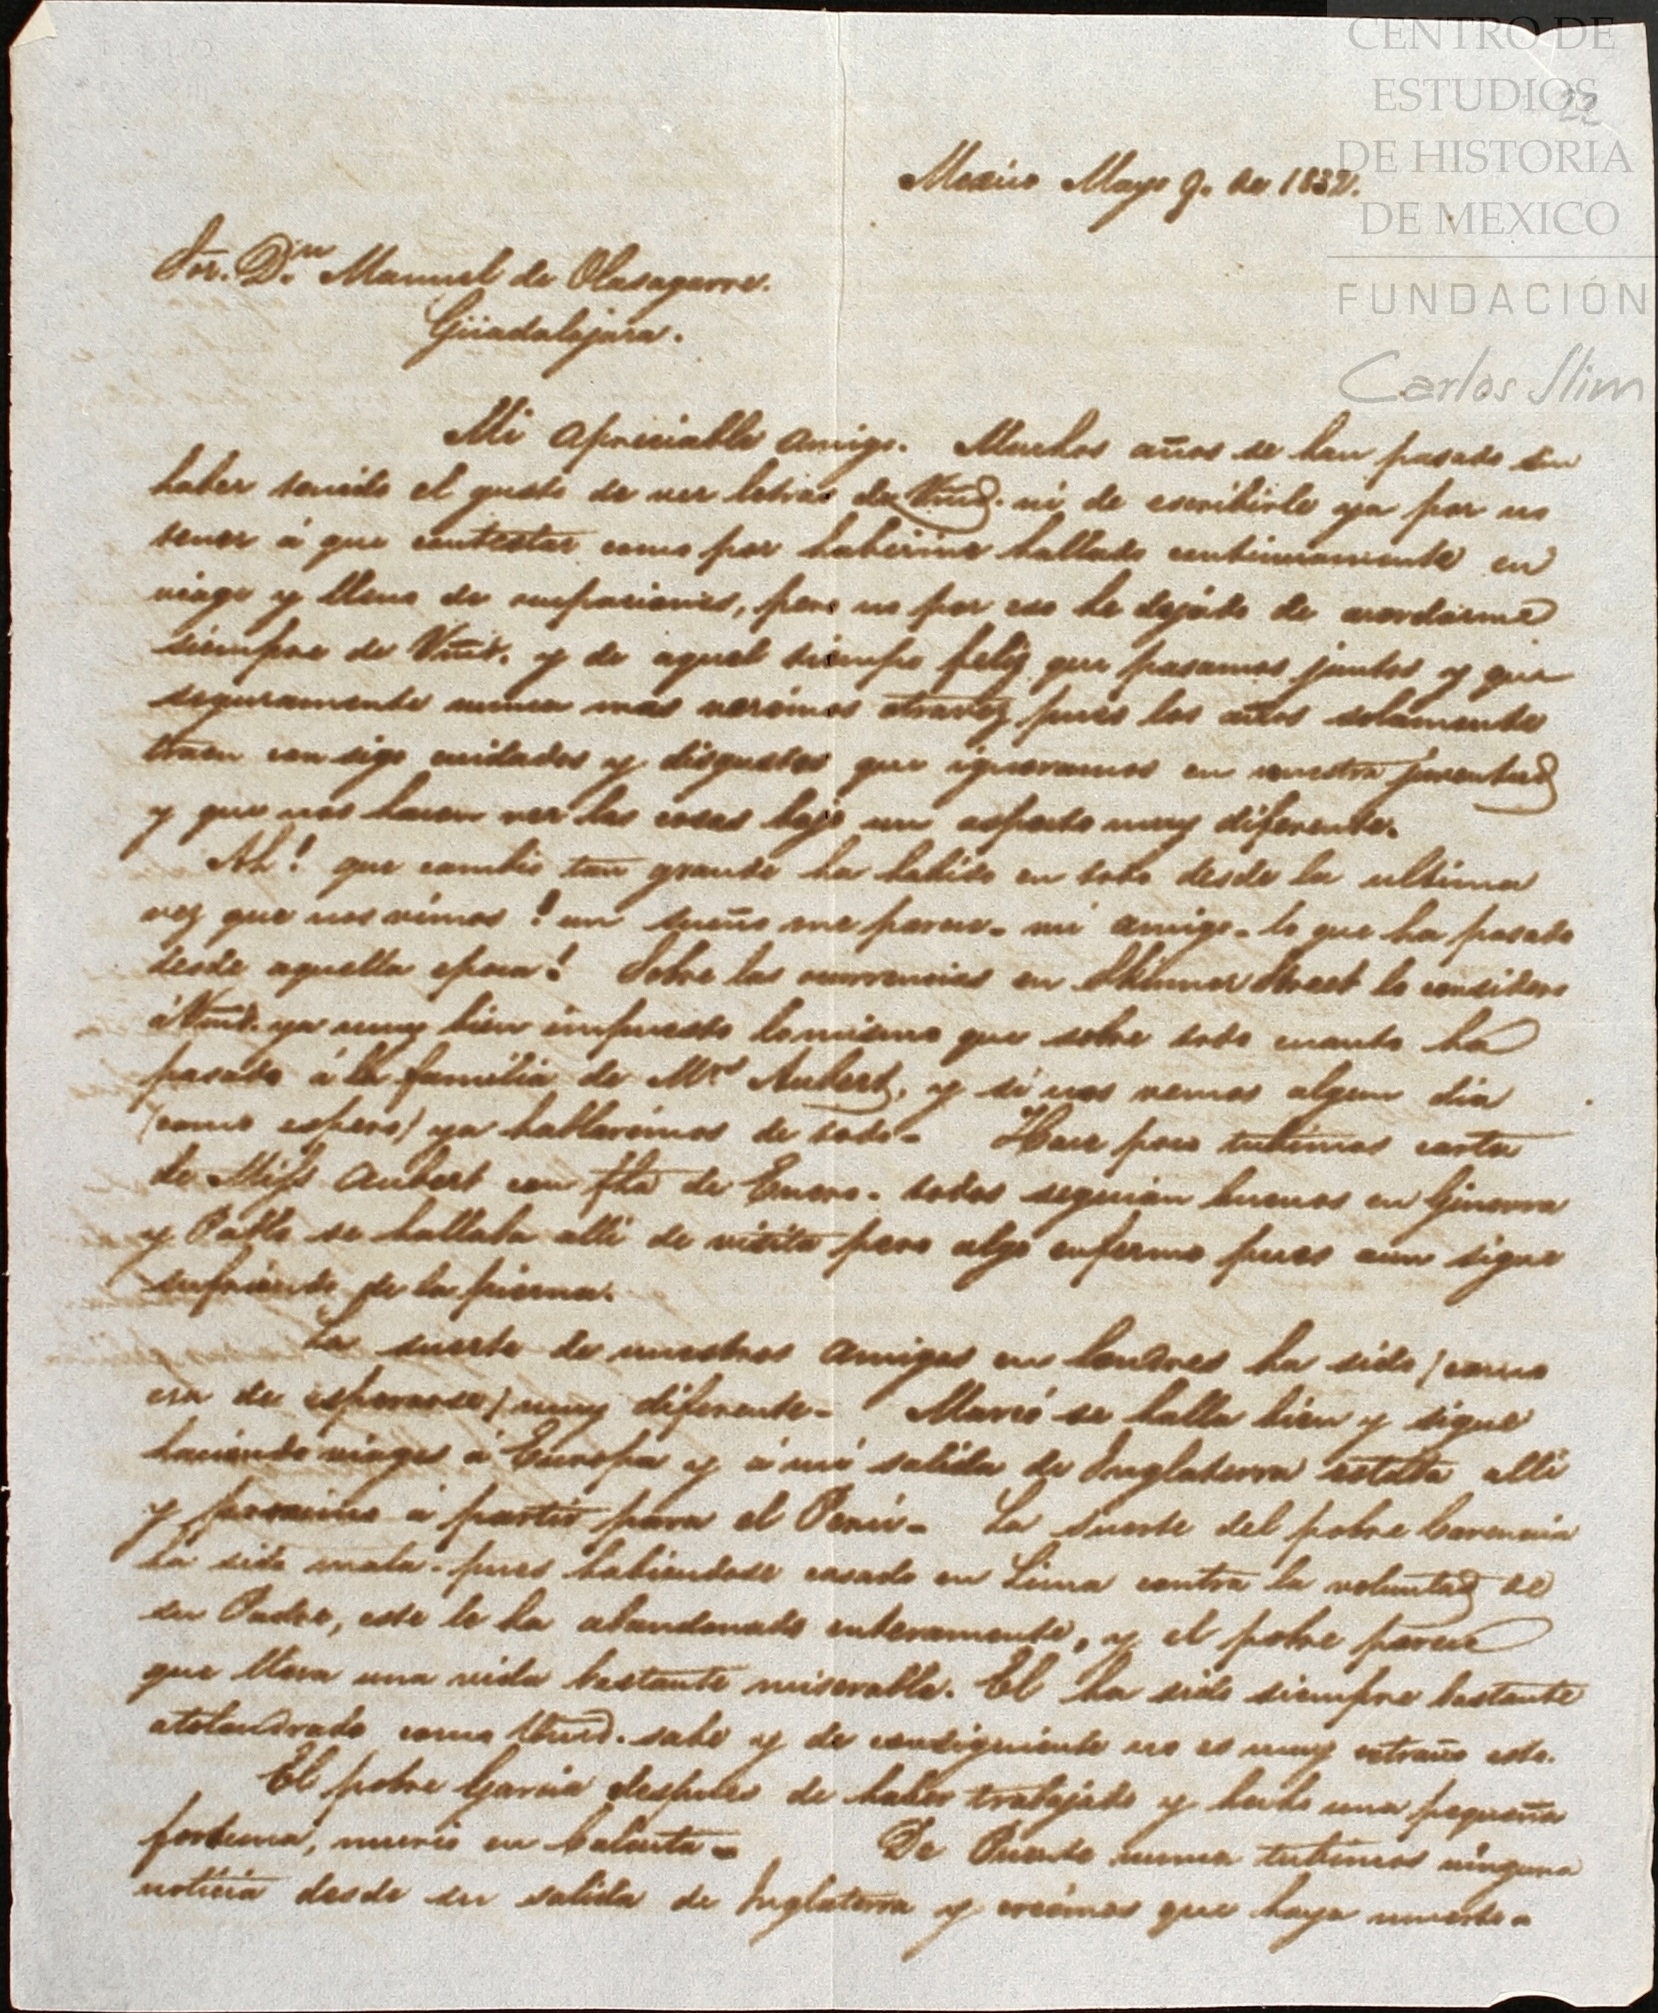 CENTRO DE
ESTUDIOS
DE HISTORIA
DE MEXICO
FUNDACIÓN
Carlos Slim
22
Mexico Mayo 9. de 1832.
Sor. D.n Manuel de Olasagarre.
Guadalajara.
Mi apreciable amigo. Muchos años se han pasado sin
haber tenido el gusto de ver letras de Vmd. ni de escribirle ya por no
tener á que contestar como por haberme hallado continuamente en
viage y lleno de ocupaciones, pero no por eso he dejado de acordarme
siempre de Vmd. y de aquel tiempo feliz que pasamos juntos y que
seguramente nunca mas verémos otravez pues los años solamente
traen con sigo cuidados y disgustos que ignoramos en nuestra juventud
y que nos hacen ver las cosas bajo un aspecto muy diferente.
Ah! que cambio tan grande ha habido en todo desde la ultima
vez que nos vimos! un sueño me parece - mi amigo - lo que ha pasado
desde aquella epoca! Sobre las ocurrencias en Skinner Street lo considero
á Vmd. ya muy bien impuesto lo mismo que sobre todo cuanto ha
pasado á la familia de Mrs Aubert, y si nos vemos algun dia
(como espero) ya hablarémos de todo - Hace poco tubimos carta
de Miss Aubert con fha de Enero - todos seguian buenos en Ginevra
y Pablo se hallaba alli de visita pero algo enfermo pues aun sigue
sufriendo de la pierna.
La suerte de nuestros amigos en Londres ha sido (como
era de esperarse) muy diferente - se halla bien y sigue
haciendo viages á Europa y á mi salida de Inglaterra estaba alli
y proximo á partir para el Perú - La suerte del pobre
ha sido mala - pues habiendose casado en Lima contra la voluntad de
su Padre, este lo ha abandonado enteramente, y el pobre parece
que lleva una vida bastante miserable. El ha sido siempre bastante
atolondrado como Vmd. sabe y de consiguiente no es muy extraño esto.
El pobre Garcia despues de haber trabajado y hecho una pequeña
fortuna, murió en Calcuta - De Puente nunca tubimos ninguna
noticia desde su salida de Inglaterra y creémos que haya muerto -